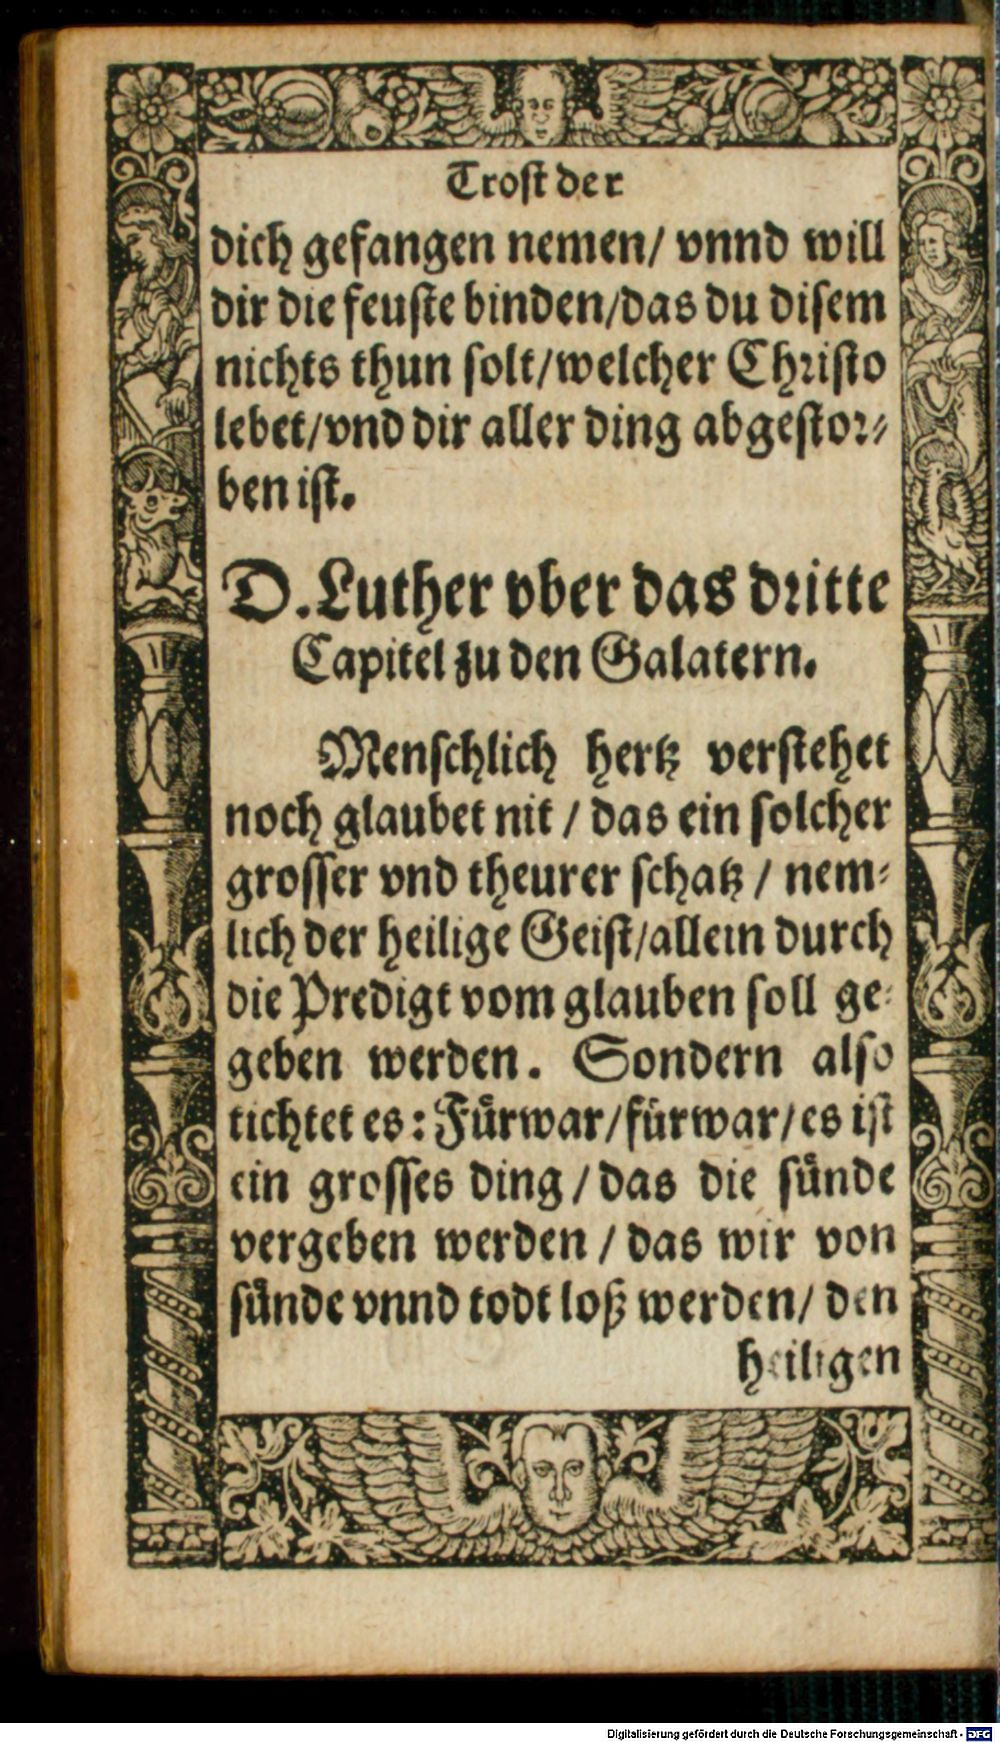 Trost der
dich gefangen nemen/ vnnd will
dir die feuste binden/das du disem
nichts thun solt/welcher Christo
lebet/vnd dir aller ding abgestor⸗
ben ist.
D. Luther vber das dritte
Capitel zu den Galatern.
Menschlich hertz verstehet
noch glaubet nit / das ein solcher
grosser vnd theurer schatz / nem⸗
lich der heilige Geist/allein durch
die Predigt vom glauben soll ge⸗
geben werden. Sondern also
tichtet es: Fürwar/fürwar/es ist
ein grosses ding / das die sünde
vergeben werden / das wir von
sünde vnnd todt loß werden/ den
heiligen
Digitalisierung gefördert durch die Deutsche Forschungsgemeinschaft - DFG